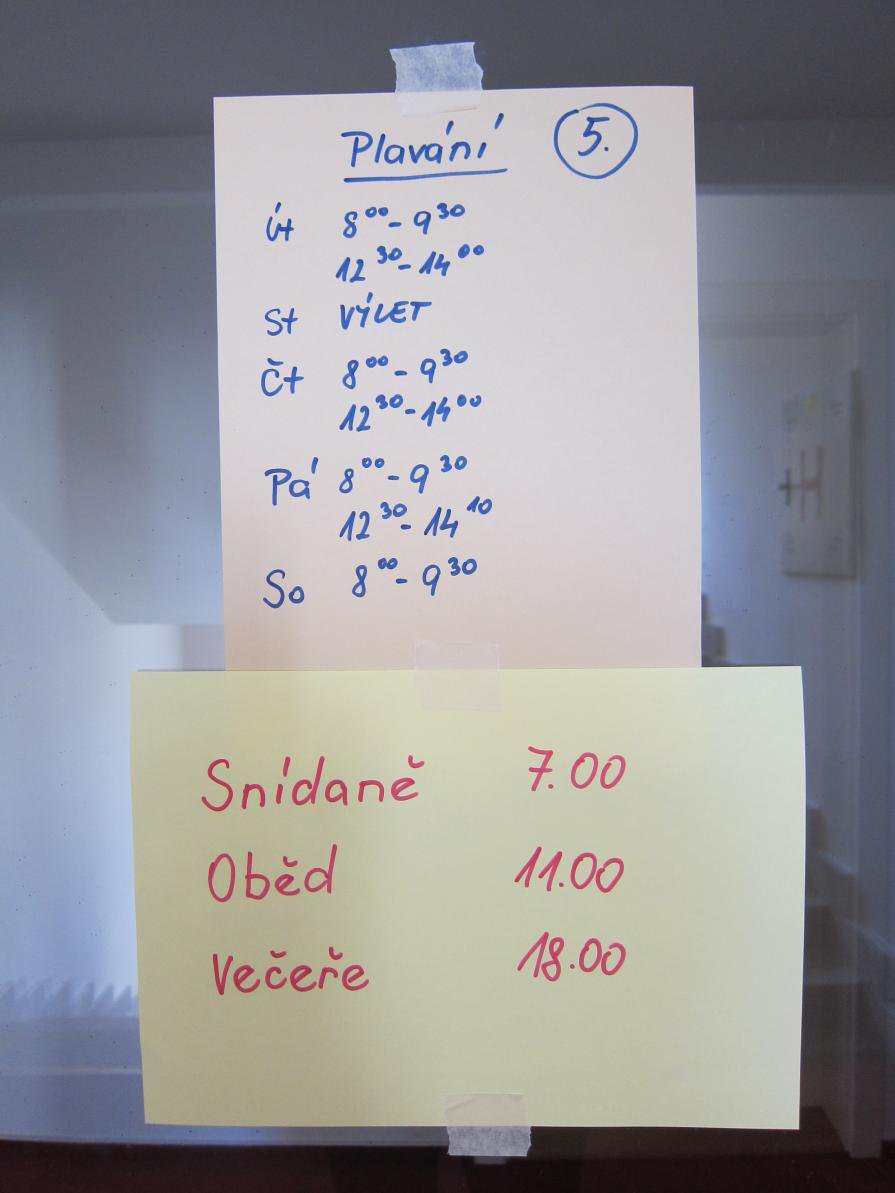 Plavání 5.
Út 8⁰⁰ - 9³⁰
12³⁰ - 14⁰⁰
St VÝLET
Čt 8⁰⁰ - 9³⁰
12³⁰ - 14⁰⁰
Pá 8⁰⁰ - 9³⁰
12³⁰ - 14¹⁰
So 8⁰⁰ - 9³⁰
Snídaně 7.00
Oběd 11.00
Večeře 18.00